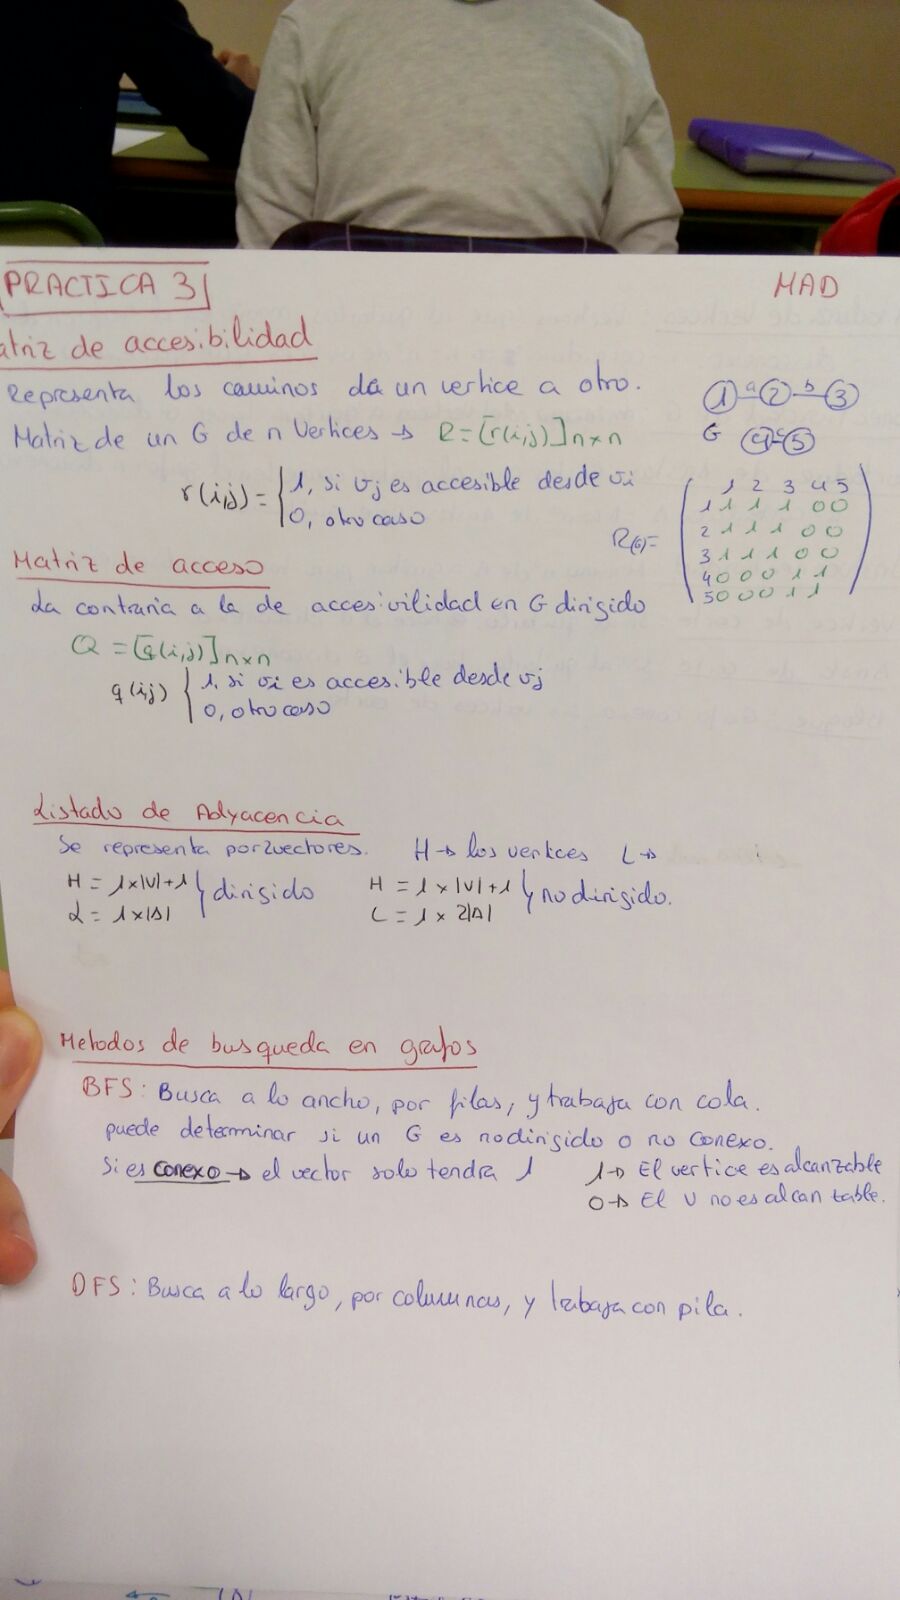 PRACTICA 3
MAD
atriz de accesibilidad
Representa los caminos da un vertice a otro.
Matriz de un G de n Vertices → R=[r(i,j)]n×n
r(i,j) = { 1, si vj es accesible desde vi
0, otro caso
1 a 2 b 3
G 4 c 5
R(G)=
1 2 3 4 5
1 1 1 1 0 0
2 1 1 1 0 0
3 1 1 1 0 0
4 0 0 0 1 1
5 0 0 0 1 1
Matriz de acceso
La contraria a la de accesivilidad en G dirigido
Q = [q(i,j)]n×n
q(i,j) { 1, si vi es accesible desde vj
0, otro caso
Listado de Adyacencia
Se representa por 2 vectores. H→ los vertices L→
H = 1×|V|+1 } dirigido
L = 1×|A|
H = 1×|V|+1 } no dirigido.
L = 1× 2|A|
Metodos de busqueda en grafos
BFS: Busca a lo ancho, por filas, y trabaja con cola.
puede determinar si un G es no dirigido o no conexo.
Si es conexo → el vector solo tendra 1
1→ El vertice es alcanzable
0→ El V no es alcantable.
DFS: Busca a lo largo, por columnas, y trabaja con pila.